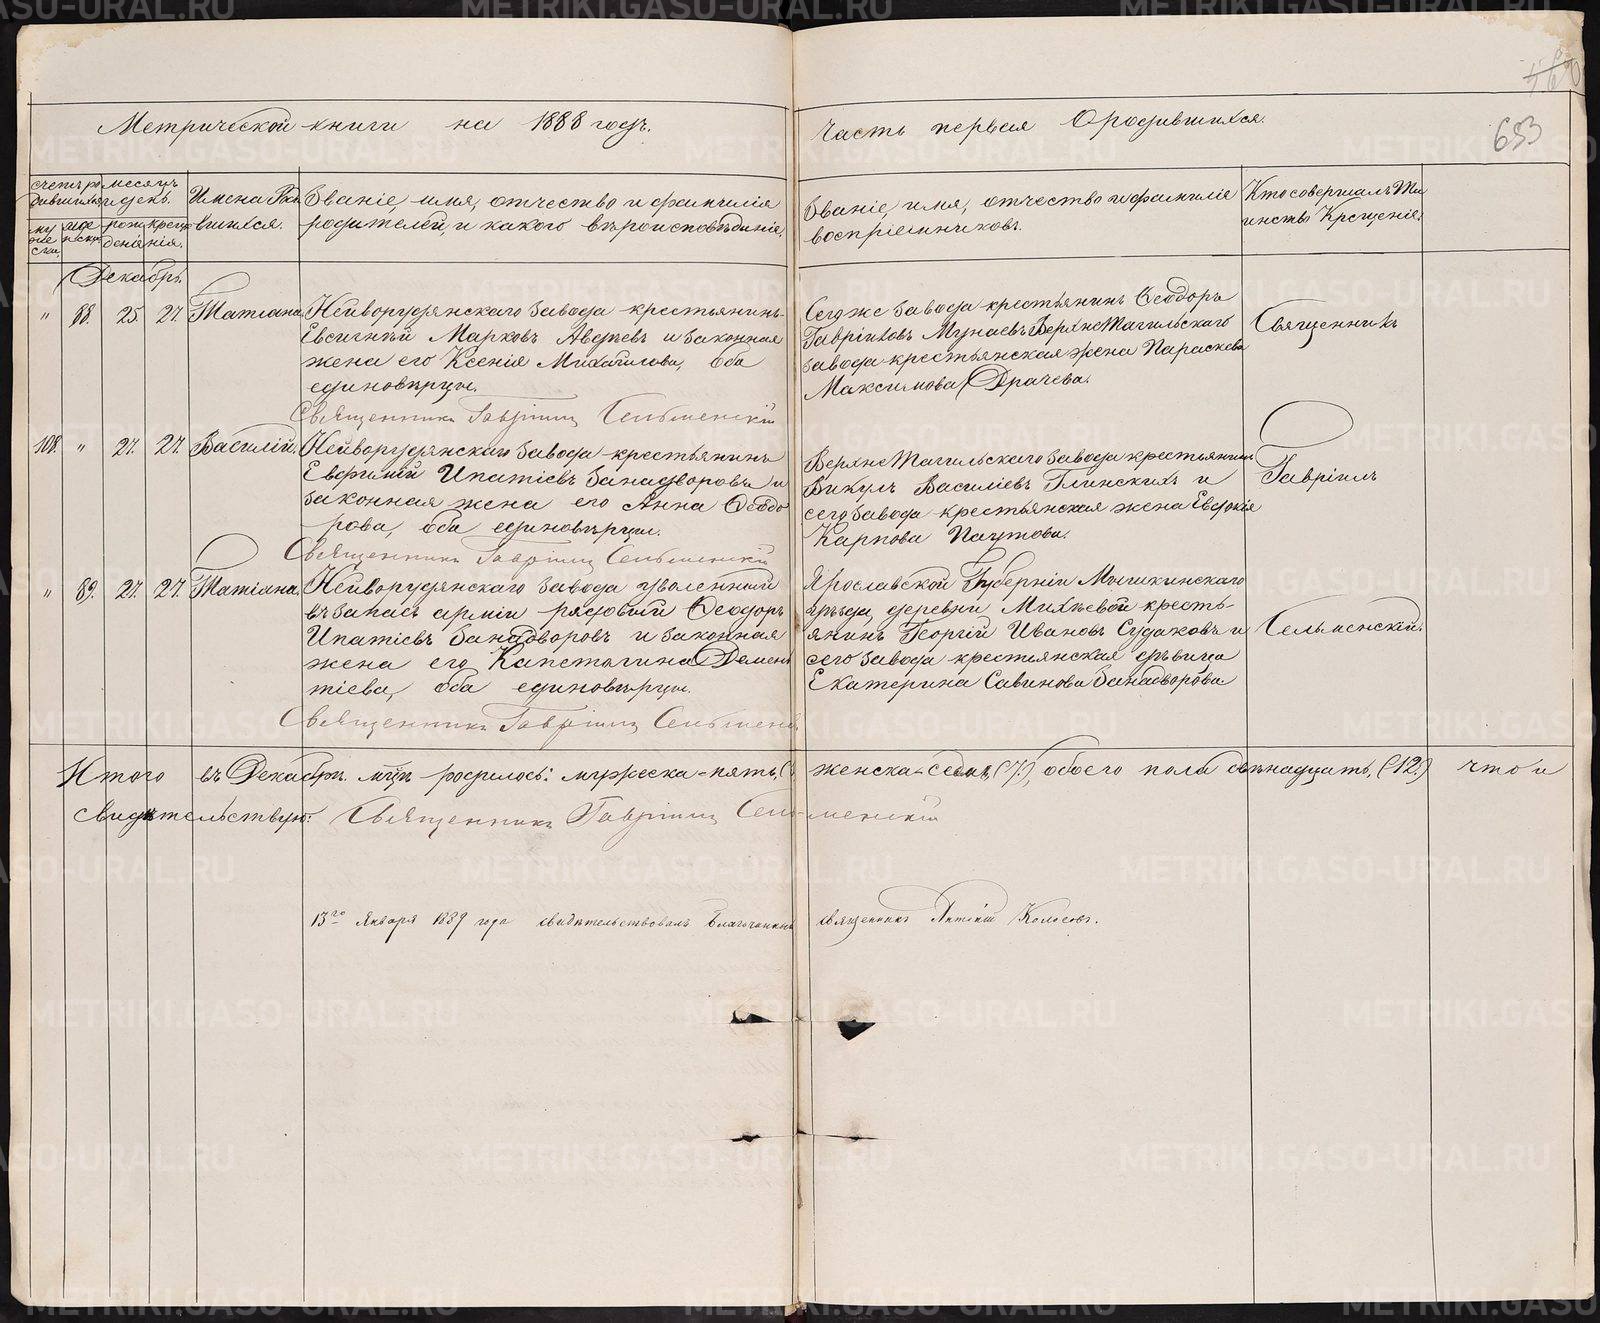 Метрической книги на 1888 годъ.
Часть первая О родившихся.
653
Счетъ ро
дившихся
месяцъ
и день.
Имена Роди
вшихся.
Званіе, имя, отчество и фамилія
родителей, и какого вѣроисповѣданія.
Званіе, имя, отчество и фамилія
воспріемниковъ.
Кто совершалъ Та
инство Крещенія.
му
же
ска,
же
нска
рож
денія
креще
нія.
Декабрь.
" 88. 25 27. Татіана
Нейворуднянскаго завода крестьянинъ
Евсигній Марковъ Авдѣевъ и законная
жена его Ксенія Михайлова, оба
единовѣрцы.
Священникъ Гавріилъ Сельменскій
Сего же завода крестьянинъ Ѳеодоръ
Гавріиловъ Мунаевъ Верхне Тагильскаго
завода крестьянская жена Параскева
Максимова Драчева.
Священникъ
108. " 27. 27. Василій.
Нейворуднянскаго завода крестьянинъ
Евфимій Ипатіевъ Занадворовъ и
законная жена его Анна Ѳеодо
рова, оба единовѣрцы.
Священникъ Гавріилъ Сельменскій
Верхне Тагильскаго завода крестьянинъ
Викулъ Василіевъ Глинскихъ и
сего завода крестьянская жена Евдокія
Карпова Паутова.
Гавріилъ
" 89. 27. 27. Татіана.
Нейворуднянскаго завода уволенный
въ запасъ арміи рядовый Ѳеодоръ
Ипатіевъ Занадворовъ и законная
жена его Капетолина Демен
тіева, оба единовѣрцы.
Священникъ Гавріилъ Сельменскій
Ярославской Губерніи Мышкинскаго
уѣзда, деревни Михѣевой кресть-
янинъ Георгій Ивановъ Судаковъ и
сего завода крестьянская дѣвица
Екатерина Савинова Занадворова.
Сельменскій.
Итого въ Декабрѣ мцѣ родилось: мужеска-пять, женска-седмь (7.), обоего пола двѣнадцать, (12.) что и
свидѣтельствую: Священникъ Гавріилъ Сельменскій
13го Января 1889 года свидѣтельствовалъ Благочинный священникъ Колосовъ.
METRIKI.GASO-URAL.RU